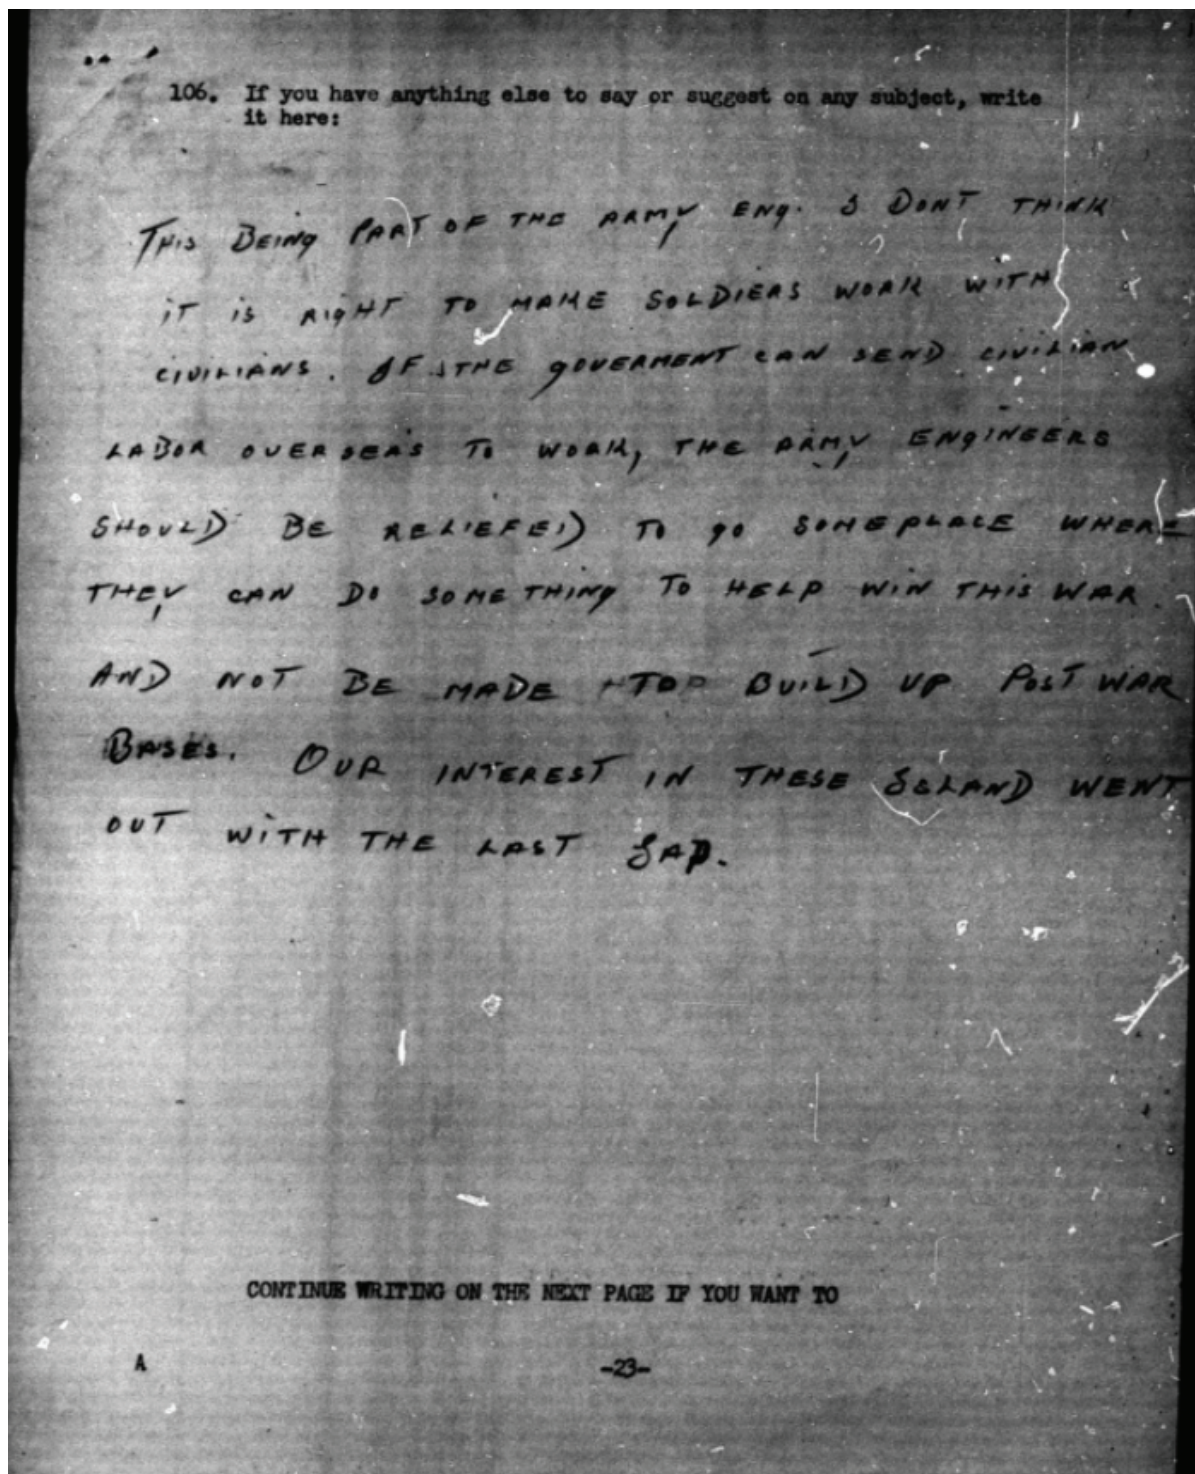 106. If you have anything else to say or suggest on any subject, write
it here:
THIS BEING PART OF THE ARMY ENG. I DONT THINK
IT IS RIGHT TO MAKE SOLDIERS WORK WITH
CIVILIANS. IF THE GOVERMENT CAN SEND CIVILIAN
LABOR OVERSEAS TO WORK, THE ARMY ENGINEERS
SHOULD BE RELIEFED TO GO SOMEPLACE WHERE
THEY CAN DO SOMETHING TO HELP WIN THIS WAR.
AND NOT BE MADE TO BUILD UP POST WAR
BASES. OUR INTEREST IN THESE ISLAND WENT
OUT WITH THE LAST JAP.
CONTINUE WRITING ON THE NEXT PAGE IF YOU WANT TO
A -23-